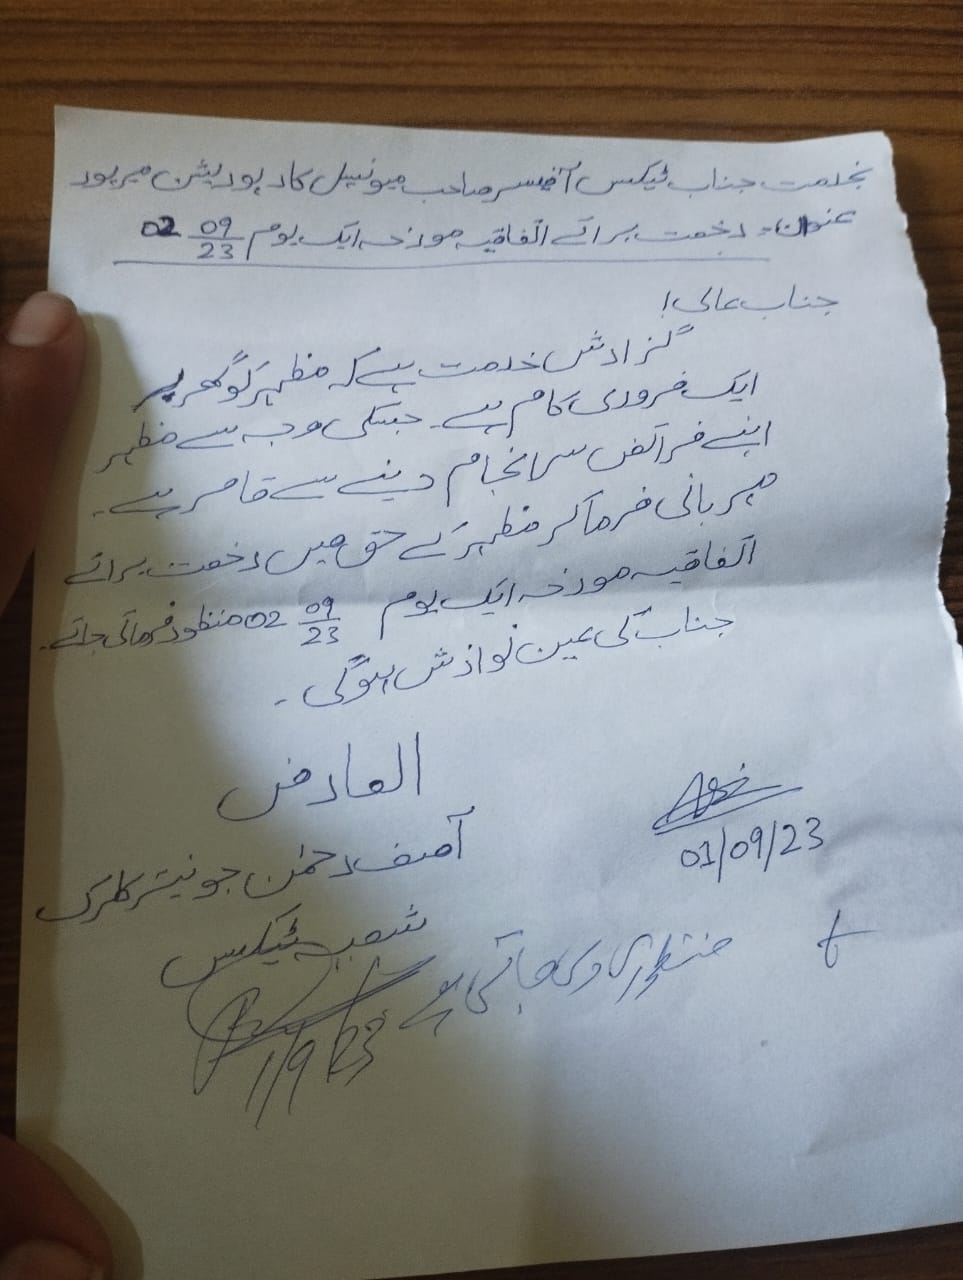 بخدمت جناب ٹیکس آفیسر صاحب میونسپل کارپوریشن میرپور
عنوان:- رخصت برائے اتفاقیہ مورخہ ایک یوم 02 09/23
جناب عالی!
گزارش خدمت ہے کہ مظہر کو گھر پر
ایک ضروری کام ہے۔ جسکی وجہ سے مظہر
اپنے فرائض سرانجام دینے سے قاصر ہے۔
مہربانی فرما کر مظہر کے حق میں رخصت برائے
اتفاقیہ مورخہ ایک یوم 02 09/23 منظور فرمائی جائے۔
جناب کی عین نوازش ہوگی۔
العارض
آصف رحمٰن جونیئر کلرک
شعبہ ٹیکس
01/09/23
منظوری دی جاتی ہے
1/9/23